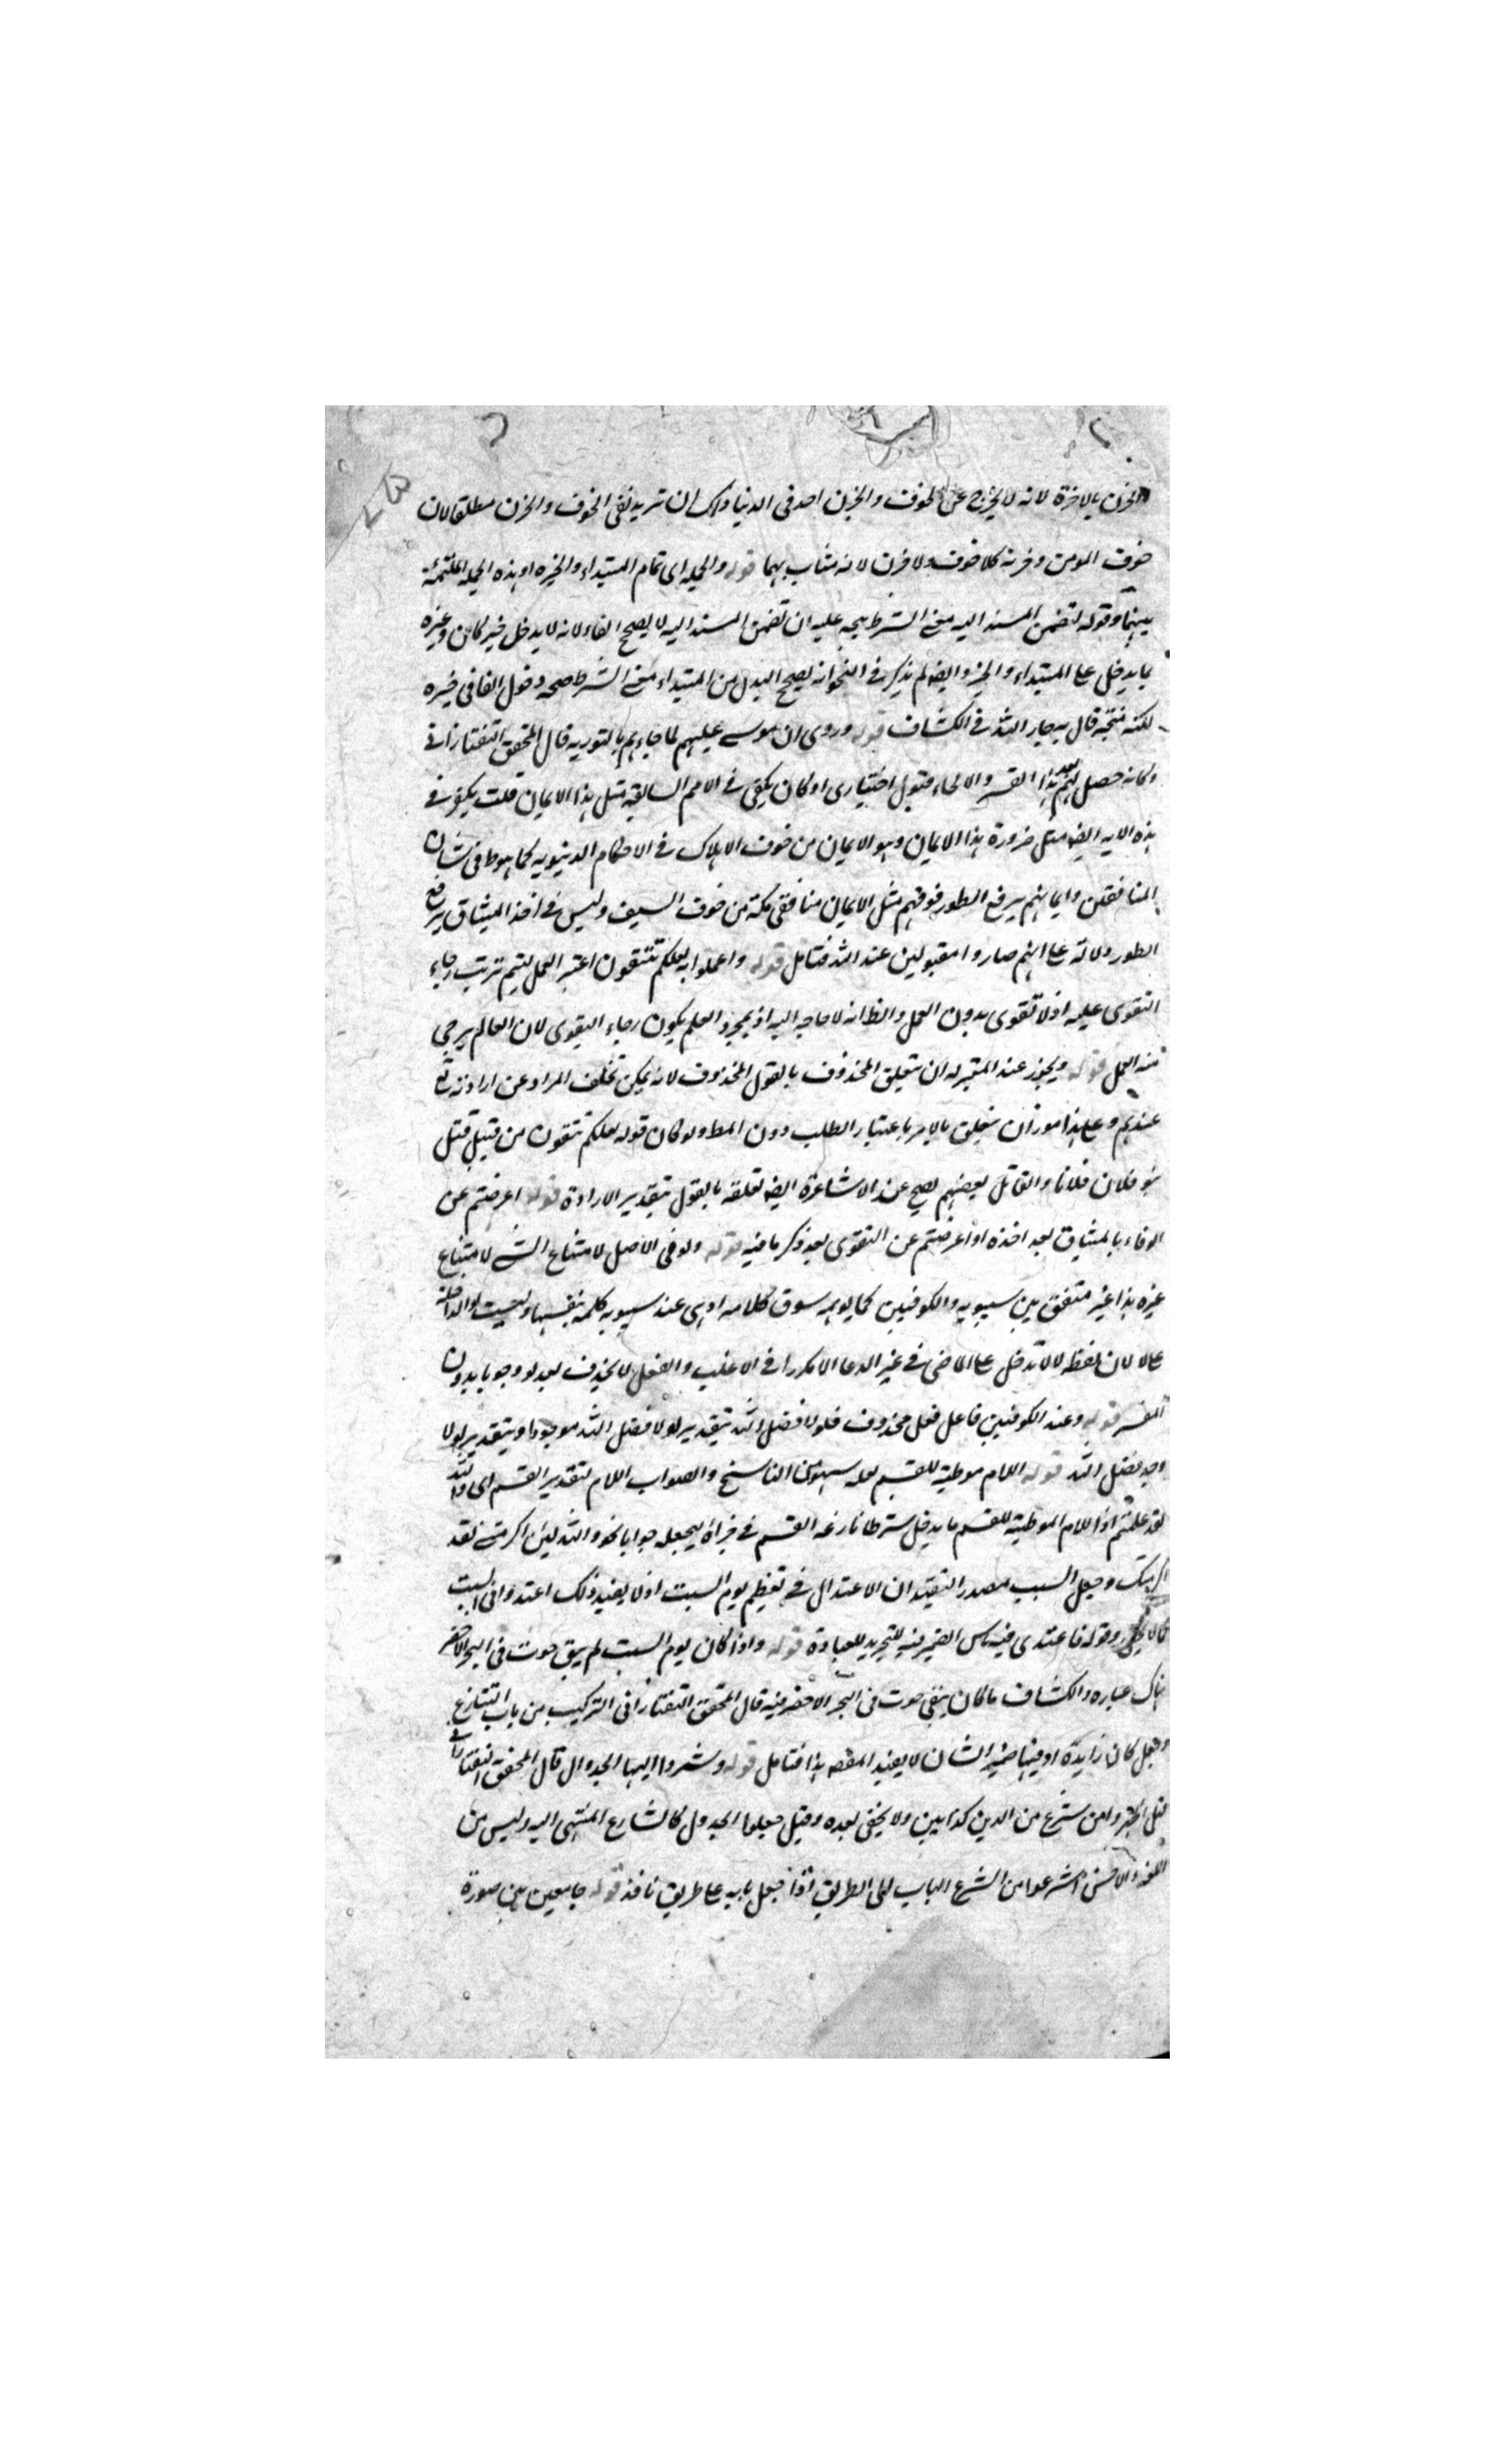 والحزن بالاخرة لانه لا يخرج عن الخوف والحزن احد في الدنيا ولك ان تريد نفى الخوف والحزن مطلقا لان
خوف المومن وحزنه كلا خوف ولا حزن لانه مثاب بهما قوله والجملة اى تمام المبتداء والخبر او هذه الجملة الملتئمة
بينهما وقوله لتضمن المسند اليه معنى الشرط يتجه عليه ان تضمن المسند اليه لا يصحح الفاء لانه لا يدخل خبر كان وغيره
مما يدخل على المبتداء والخبر وايضا لم يذكر في النحو انه يصح البدل من المبتداء معنى الشرط صحة دخول الفا في خبره
لكنه قال به جار الله في الكشاف قوله وروى ان موسى عليهم لما جاءهم بالتورية قال المحقق التفتازانى
وكانه حصل لهم بعد هذا القسر والالجاء قبول اختيارى او كان يكفى في الامم السالفة مثل هذا الايمان قلت يكفى في
هذه الاية ايضا مثل ضرورة هذا الايمان وهو الايمان من خوف الاهلاك في الاحكام الدنيوية كما هو في شان
المنافقين وايمانهم برفع الطور فوقهم مثل الايمان منافقى مكة من خوف السيف وليس في اخذ الميثاق برفع
الطور دلالة على انهم صاروا مقبولين عند الله فتامل قوله واعملوا به لعلكم تتقون اعتبر العمل ليتم ترتب رجاء
التقوى عليه اذ لا تقوى بدون العمل والظ انه لا حاجة اليه اذ بمجرد العلم يكون رجاء التقوى لان العالم يرجى
منه العمل قوله ويجوز عند المعتزله ان يتعلق المحذوف بالقول المحذوف لانه يمكن تخلف المراد عن ارادته تع
عندهم وعلى هذا جوز ان يتعلق بالامر باعتبار الطلب دون المط ولو كان قوله لعلكم تتقون من قبيل قتل
بنو فلان فلانا والقاتل بعضهم يصح عند الاشاعرة ايضا تعلقه بالقول بتقدير الارادة قوله اعرضتم عن
الوفاء بالميثاق بعد اخذه او اعرضتم عن التقوى بعد ذكر ما فيه قوله ولو في الاصل لامتناع الشئ لامتناع
غيره هذا غير متفق بين سيبويه والكوفيين كما يوهمه سوق كلامه اذ هى عند سيبويه كلمة بنفسها وليست لو الداخلة
على لا لان لفظه لا لا تدخل على الماضى في غير الدعا الا مكررا في الاغلب والفعل لا يحذف بعد لو وجوبا بدون
المفسر قوله وعند الكوفيين فاعل فعل محذوف فلولا فضل الله بتقدير لولا فضل الله موجود او بتقدير لولا
وجد فضل الله قوله اللام موطية للقسم لعله سهو من الناسخ والصواب اللام لتقدير القسم اى والله
لقد علمتم اذ اللام الموطية للقسم ما يدخل شرطا نازعه القسم في جزائه ليجعله جوابا نحو والله لئن اكرمتنى لقد
اكرمتك وجعل السبب مصدرا لتقيد ان الاعتدال في تعظيم يوم السبت اذ لا يفيد ذلك اعتدوا في السبت
وقوله فاعتدى فيه ناس الضمير فيه للتجريد للعبادة قوله واذا كان يوم السبت لم يبق حوت في البحر الا حضر
هناك عبارة الكشاف ما كان يبقى حوت في البحر الا حضر فيه قال المحقق التفتازانى التركيب من باب التنازع
وجعل كان زايدة او فيها ضمير الشان لا يفيد المقصد هذا فتامل قوله وشرعوا اليها الجدوال قال المحقق التفتازانى
ولا يخفى بعده وقيل جعلوا الجدول كالشارع المنتهى اليه وليس من
اشرعوا من الشرع الباب الى الطريق اذا جعل بابه على طريق نافذ قوله جامعين بين صورة